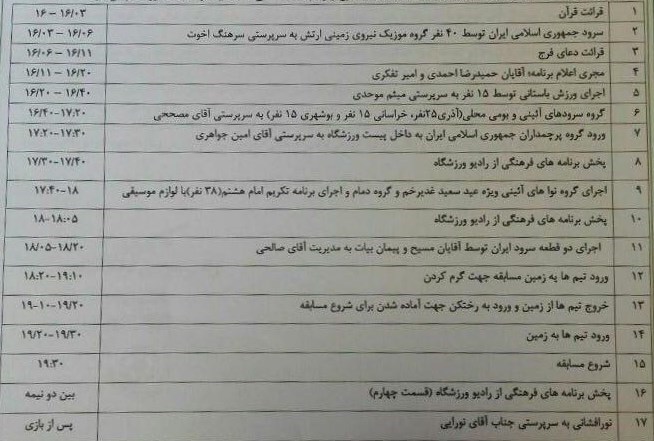 ۱ قرائت قرآن ۱۶ – ۱۶/۰۳
۲ سرود جمهوری اسلامی ایران توسط ۴۰ نفر گروه موزیک نیروی زمینی ارتش به سرپرستی سرهنگ اخوت ۱۶/۰۳ – ۱۶/۰۶
۳ قرائت دعای فرج ۱۶/۰۶ – ۱۶/۱۱
۴ مجری اعلام برنامه؛ آقایان حمیدرضا احمدی و امیر تفکری ۱۶/۱۱ – ۱۶/۲۰
۵ اجرای ورزش باستانی توسط ۱۵ نفر به سرپرستی میثم موحدی ۱۶/۲۰ – ۱۶/۴۰
۶ گروه سرودهای آئینی و بومی محلی(آذری۲۵نفر، خراسانی ۱۵ نفر و بوشهری ۱۵ نفر) به سرپرستی آقای مصححی ۱۶/۴۰-۱۷:۲۰
۷ ورود گروه پرچمداران جمهوری اسلامی ایران به داخل پیست ورزشگاه به سرپرستی آقای امین جواهری ۱۷:۲۰-۱۷:۳۰
۸ پخش برنامه های فرهنگی از رادیو ورزشگاه ۱۷/۳۰-۱۷/۴۰
۹ اجرای گروه نوا های آئینی ویژه عید سعید غدیرخم و گروه دمام و اجرای برنامه تکریم امام هشتم(۳۸ نفر)با لوازم موسیقی ۱۷:۴۰-۱۸
۱۰ پخش برنامه های فرهنگی از رادیو ورزشگاه ۱۸-۱۸:۰۵
۱۱ اجرای دو قطعه سرود ایران توسط آقایان مسیح و پیمان بیات به مدیریت آقای صالحی ۱۸/۰۵-۱۸/۲۰
۱۲ ورود تیم ها به زمین مسابقه جهت گرم کردن ۱۸:۲۰-۱۹:۱۰
۱۳ خروج تیم ها از زمین و ورود به رختکن جهت آماده شدن برای شروع مسابقه ۱۹-۱۰-۱۹/۲۰
۱۴ ورود تیم ها به زمین ۱۹/۲۰-۱۹/۳۰
۱۵ شروع مسابقه ۱۹:۳۰
۱۶ پخش برنامه های فرهنگی از رادیو ورزشگاه (قسمت چهارم) بین دو نیمه
۱۷ نورافشانی به سرپرستی جناب آقای نورایی پس از بازی